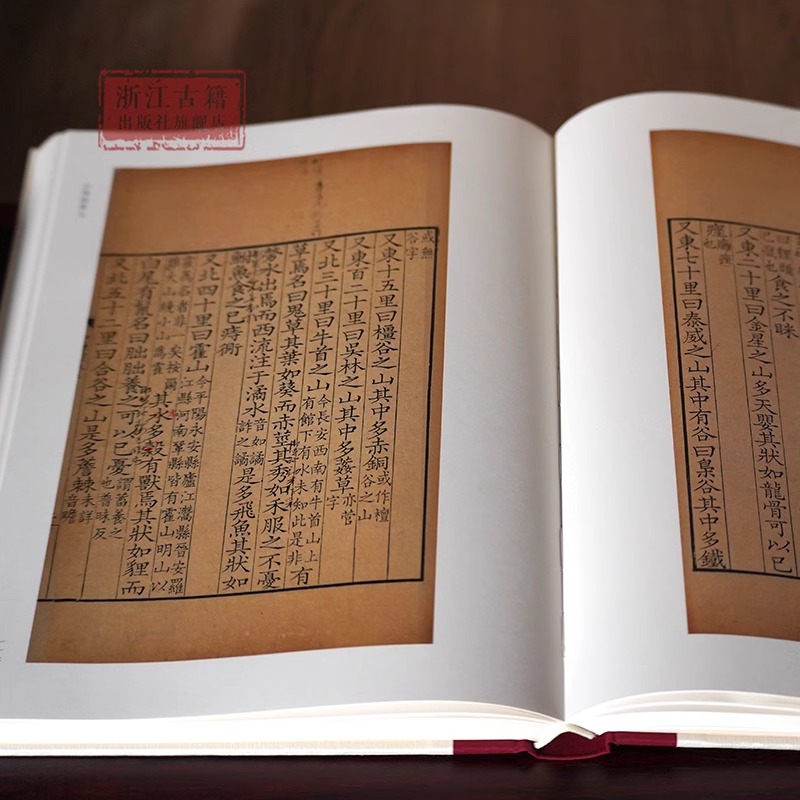 浙江古籍
出版社旗舰店
食之不眯
又東二十里曰金星之山多天嬰其狀如龍骨可以已
痤癰痤也
又東七十里曰泰威之山其中有谷曰梟谷其中多鐵
或無谷字
又東十五里曰橿谷之山其中多赤銅或作檀谷之山
又東百二十里曰吳林之山其中多葌草亦菅字
又北三十里曰牛首之山今長安西南有牛首山上有館下有水未知此是非有
草焉名曰鬼草其葉如葵而赤莖其秀如禾服之不憂
勞水出焉而西流注于潏水音如譎詐之譎是多飛魚其狀如
鮒魚食之已痔衕
又北四十里曰霍山今平陽永安縣廬江灊縣晉安羅江縣河南鞏縣皆有霍山明山以
霍為名者非一矣按爾雅大山繞小山為霍其木多穀有獸焉其狀如貍而
白尾有鬣名曰朏朏養之可以已憂謂蓄養之也普昧反
又北五十二里曰合谷之山是多薝棘未詳音瞻